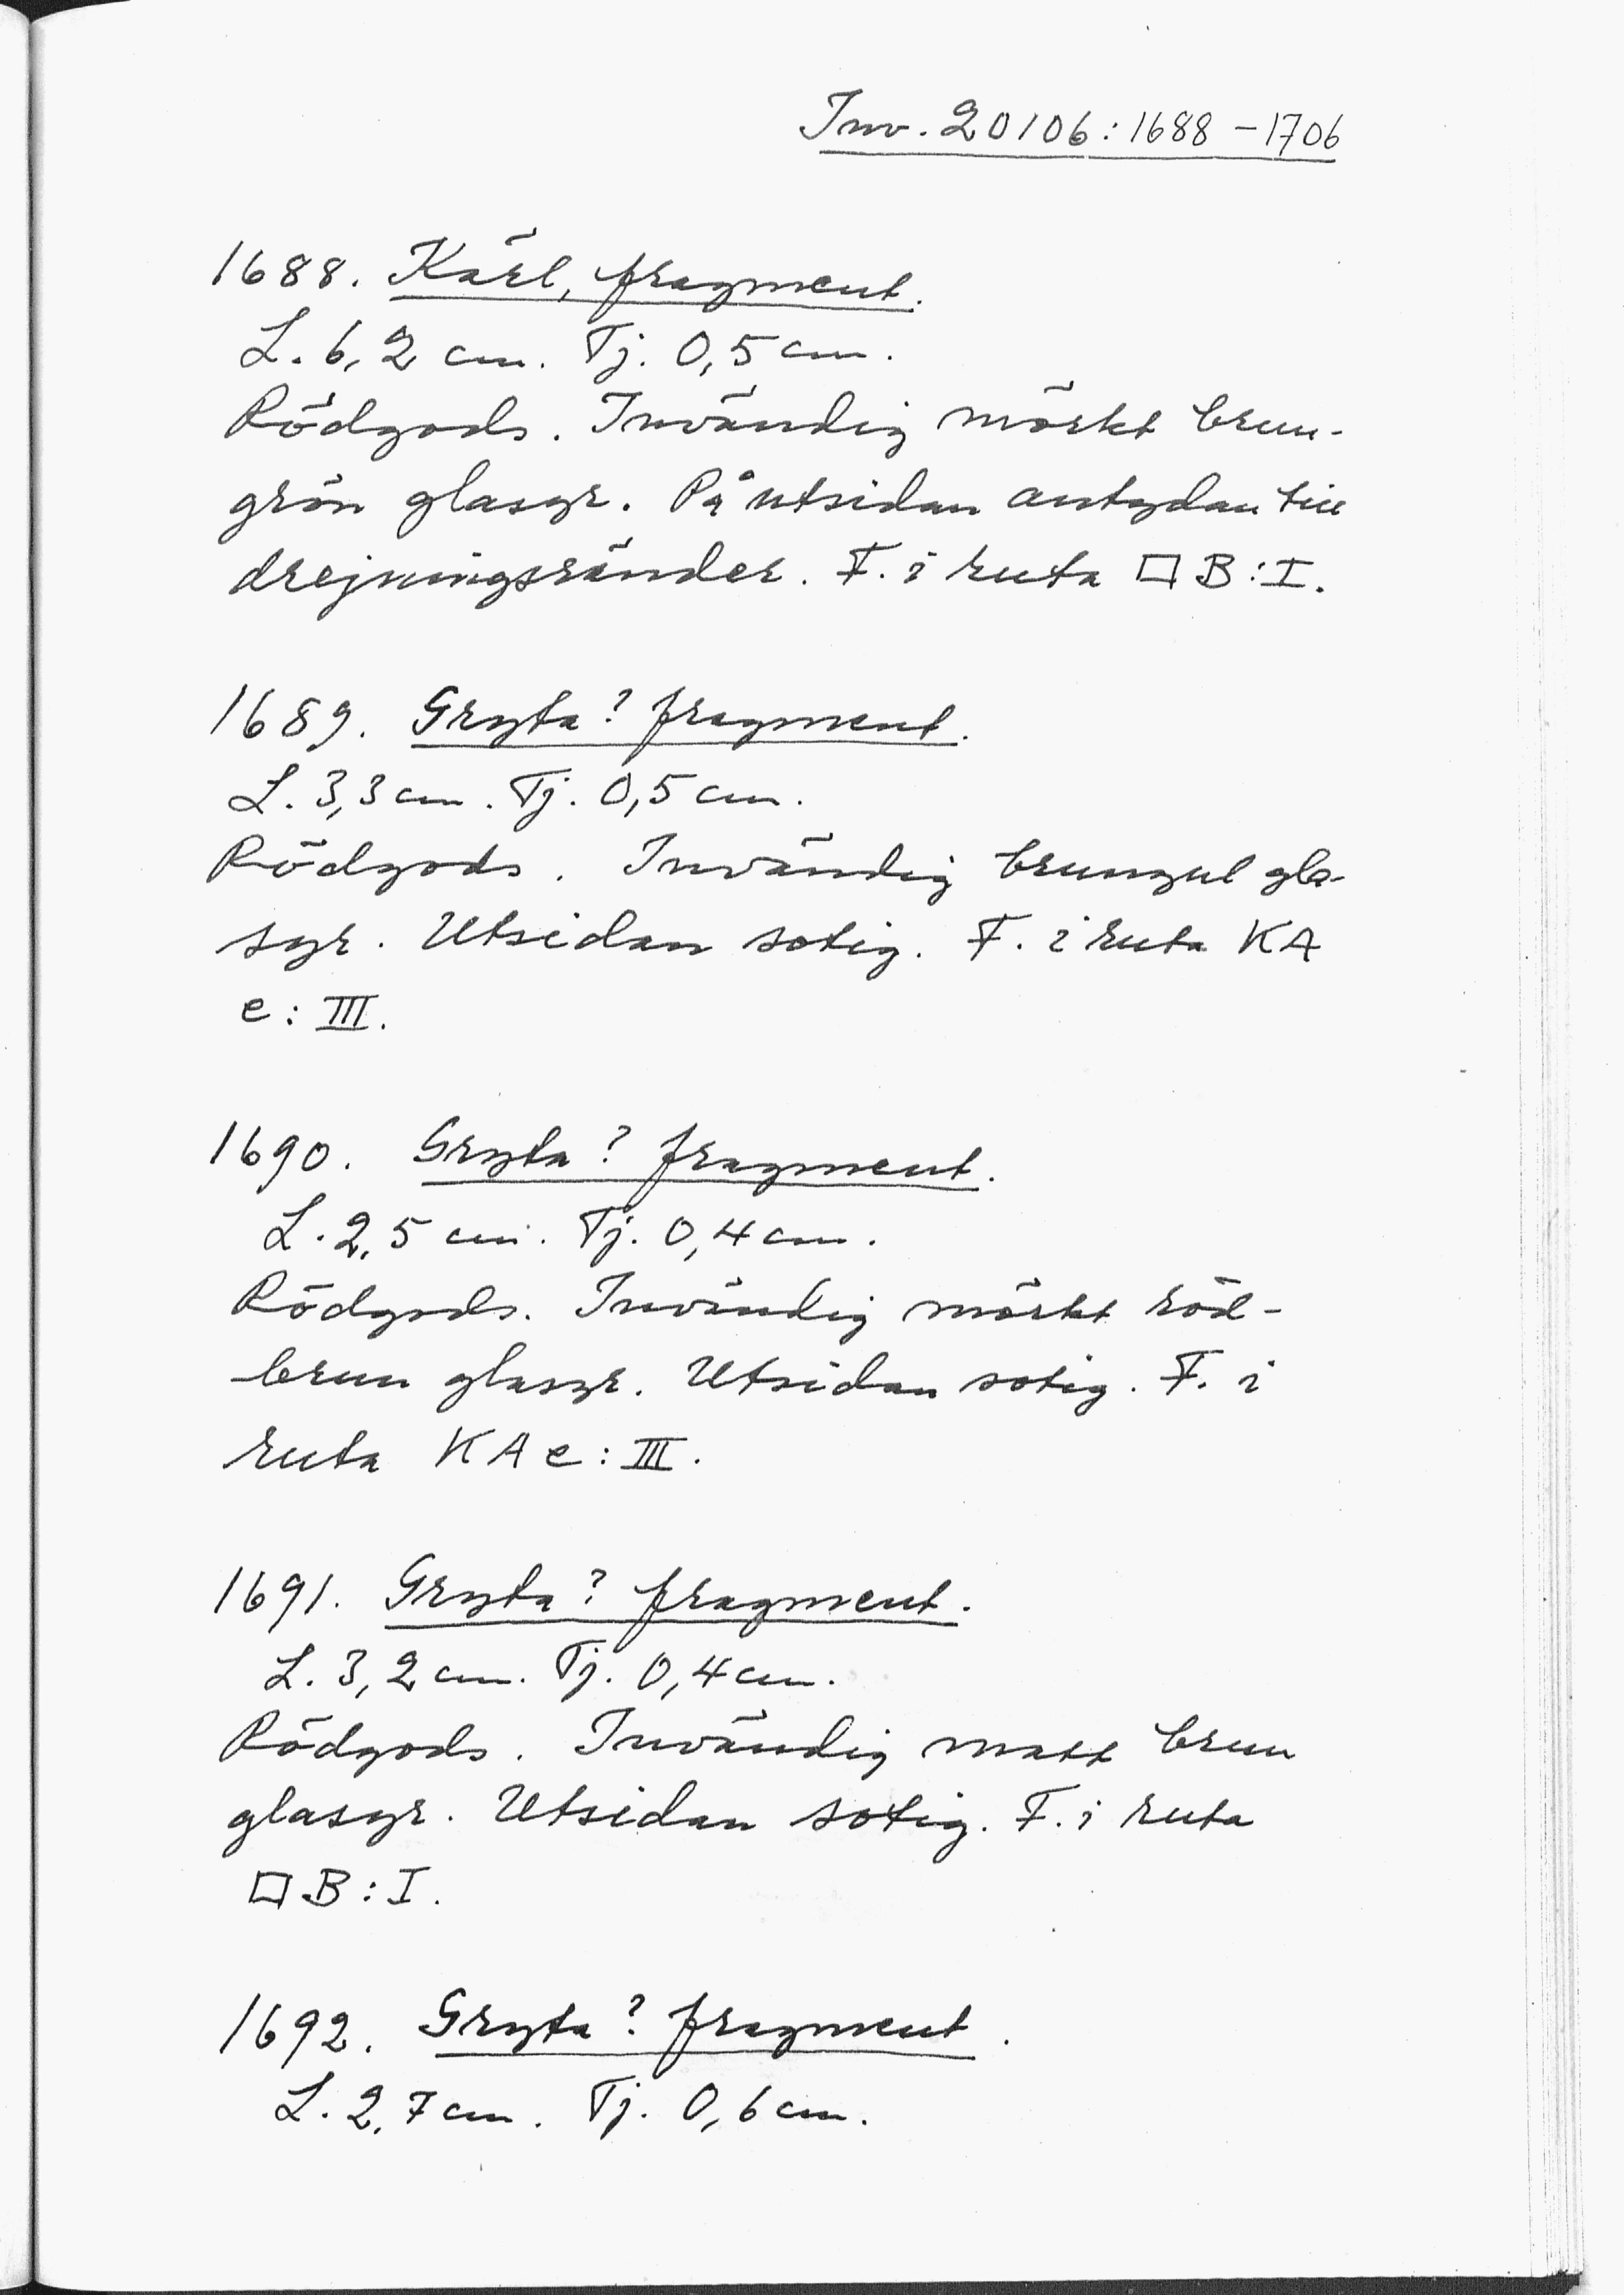 Inv. 20106:1688-1706
1688. Kärl, fragment.
L. 6,2 cm. Tj. 0,5 cm.
Rödgods. Invändig mörkt brun-
grön glasyr. På utsidan antydan till
drejningsränder. F. i ruta □ B:I.
1689. Gryta? fragment.
L. 3,3 cm. Tj. 0,5 cm.
Rödgods. Invändig brungul gla-
syr. Utsidan sotig. F. i ruta KA
e: III.
1690. Gryta? fragment.
L. 2,5 cm. Tj. 0,4 cm.
Rödgods. Invändig mörkt röd-
brun glasyr. Utsidan sotig. F. i
ruta KA e: III.
1691. Gryta? fragment.
L. 3,2 cm. Tj. 0,4 cm.
Rödgods. Invändig matt brun
glasyr. Utsidan sotig. F. i ruta
□ B: I.
1692. Gryta? fragment.
L. 2,7 cm. Tj. 0,6 cm.